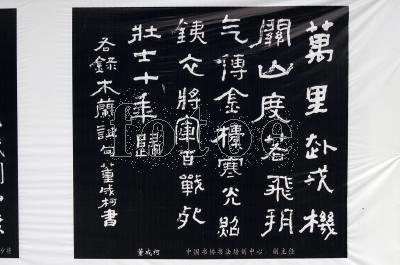 萬里赴戎機
關山度若飛朔
气傳金欜寒光照
銕衣將軍百戰死
壯士十年歸
各錄木蘭詩句董成柯書
董成柯 中国书协书法培训中心 副主任
fotoe